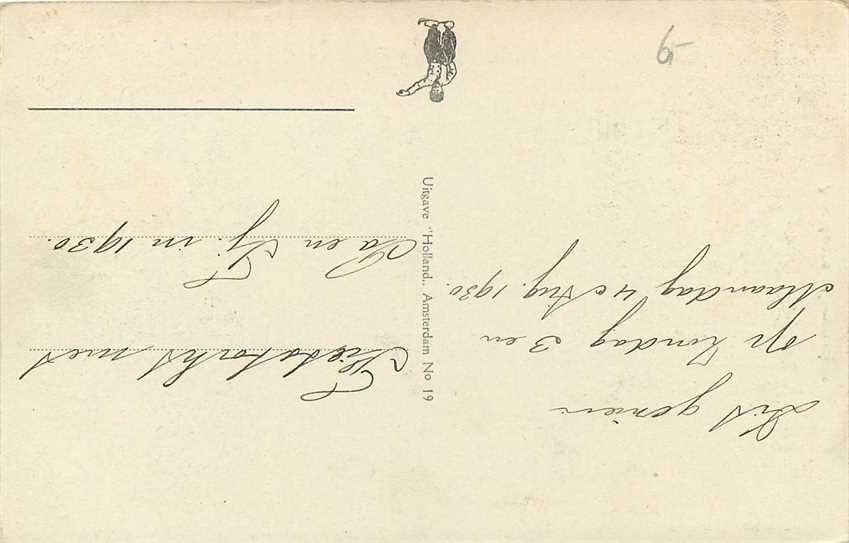 Dit gezien
op Zondag 3 en
Maandag 4 Aug. 1930.
Uitgave "Holland,, Amsterdam No 19
Fietstocht met
Pa en Tj. in 1930.
6,-